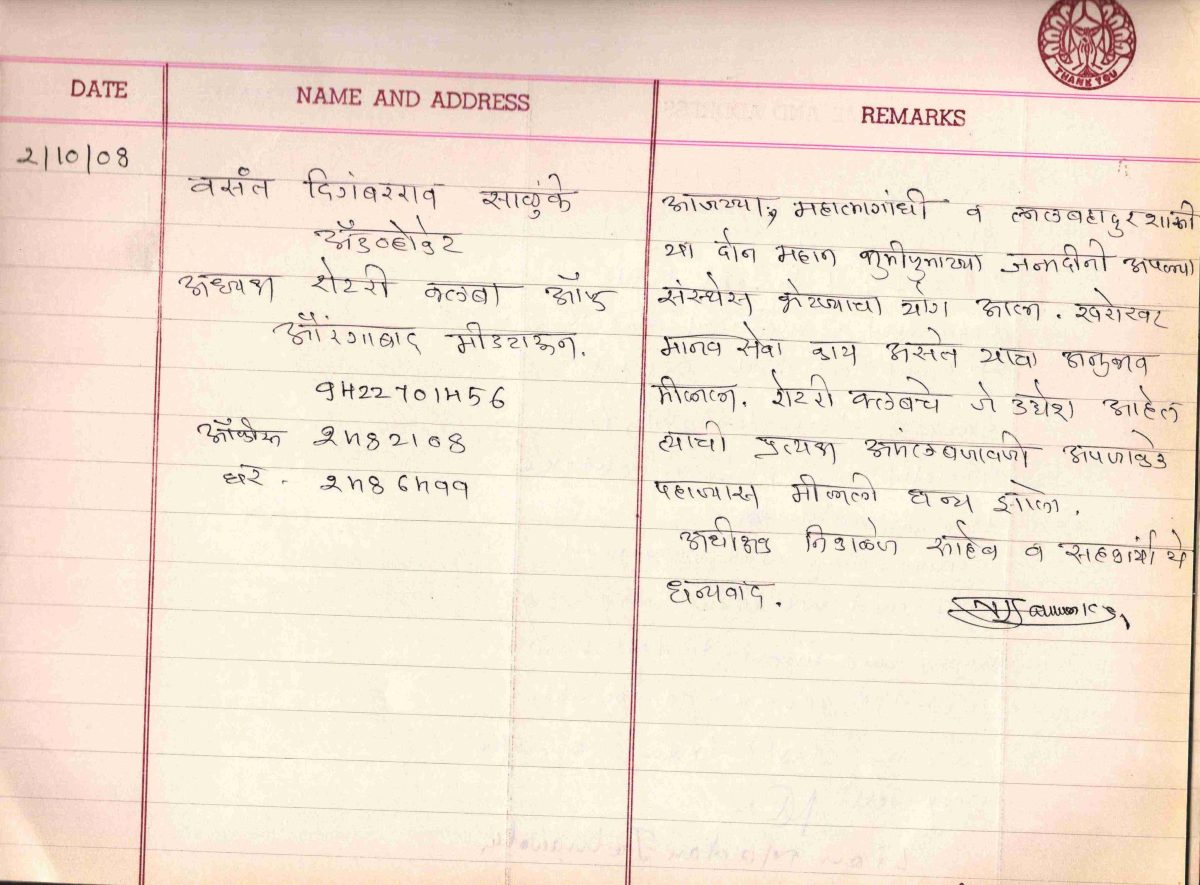 THANK YOU
DATE
NAME AND ADDRESS
REMARKS
2/10/08
वसंत दिगंबरराव साळुंके
ॲडव्होकेट
अध्यक्ष रोटरी क्लब ऑफ
औरंगाबाद मीडटाऊन.
9422701456
ऑफीस 2482108
घर - 2486499
आजच्या, महात्मागांधी व लालबहादुर शास्त्री
या दोन महान भुमीपुत्राच्या जन्मदीनी आपल्या
संस्थेस भेटण्याचा योग आला. खरोखर
मानव सेवा काय असेल याचा अनुभव
मीळाला. रोटरी क्लबचे जे उद्देश आहेत
त्याची प्रत्यक्ष अंमलबजावणी आपणाकडे
पहाण्यास मीळाली धन्य झालो.
अधीक्षक निकाळजे साहेब व सहकारी चे
धन्यवाद.